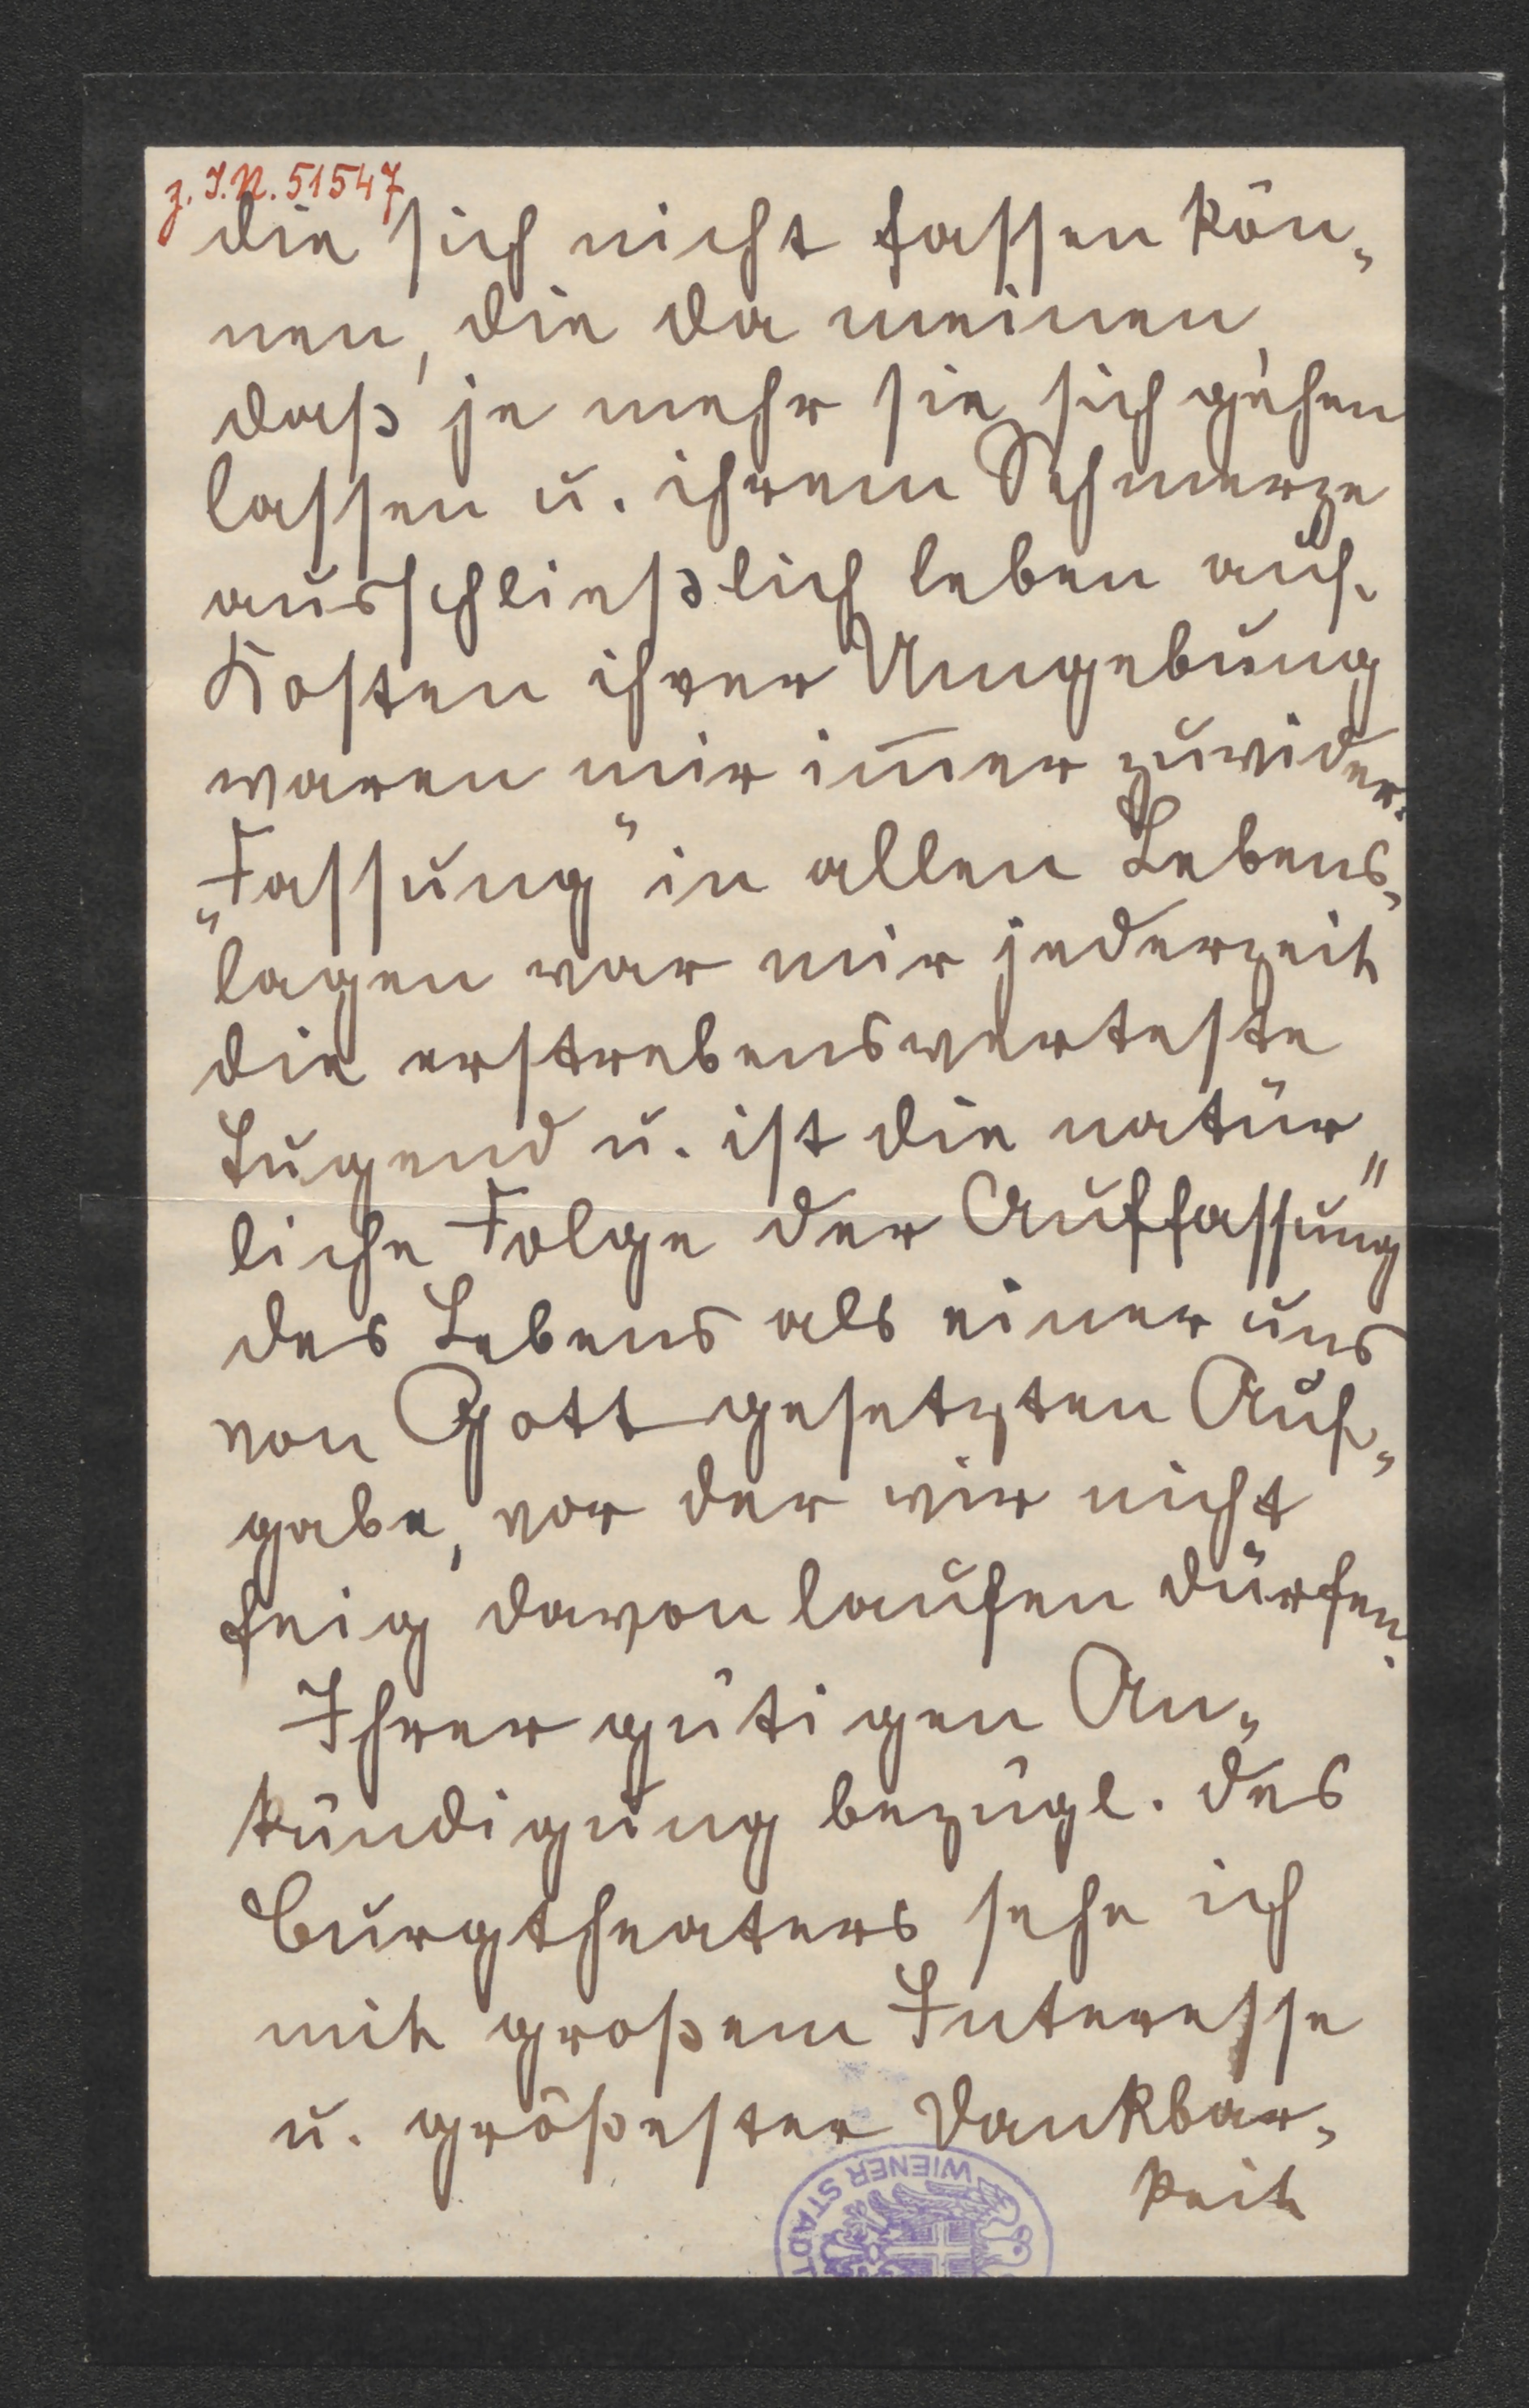 z. I.N. 51547
die sich nicht fassen kön-
nen, die da meinen,
daß je mehr sie sich gehen
lassen u. ihrem Schmerze
ausschließlich leben auf
Kosten ihrer Umgebung
waren mir im̄er zuwider.
„Fassung" in allen Lebens-
lagen war mir jederzeit
die erstrebenswerteste
Tugend u. ist die natür-
liche Folge der Auffassung
des Lebens als einer uns
von Gott gesetzten Auf-
gabe, vor der wir nicht
feig davonlaufen dürfen.
Ihrer gütigen An-
kündigung bezügl. des
Burgtheaters sehe ich
mit großem Interesse
u. größester Dankbar-
keit
WIENER STADT